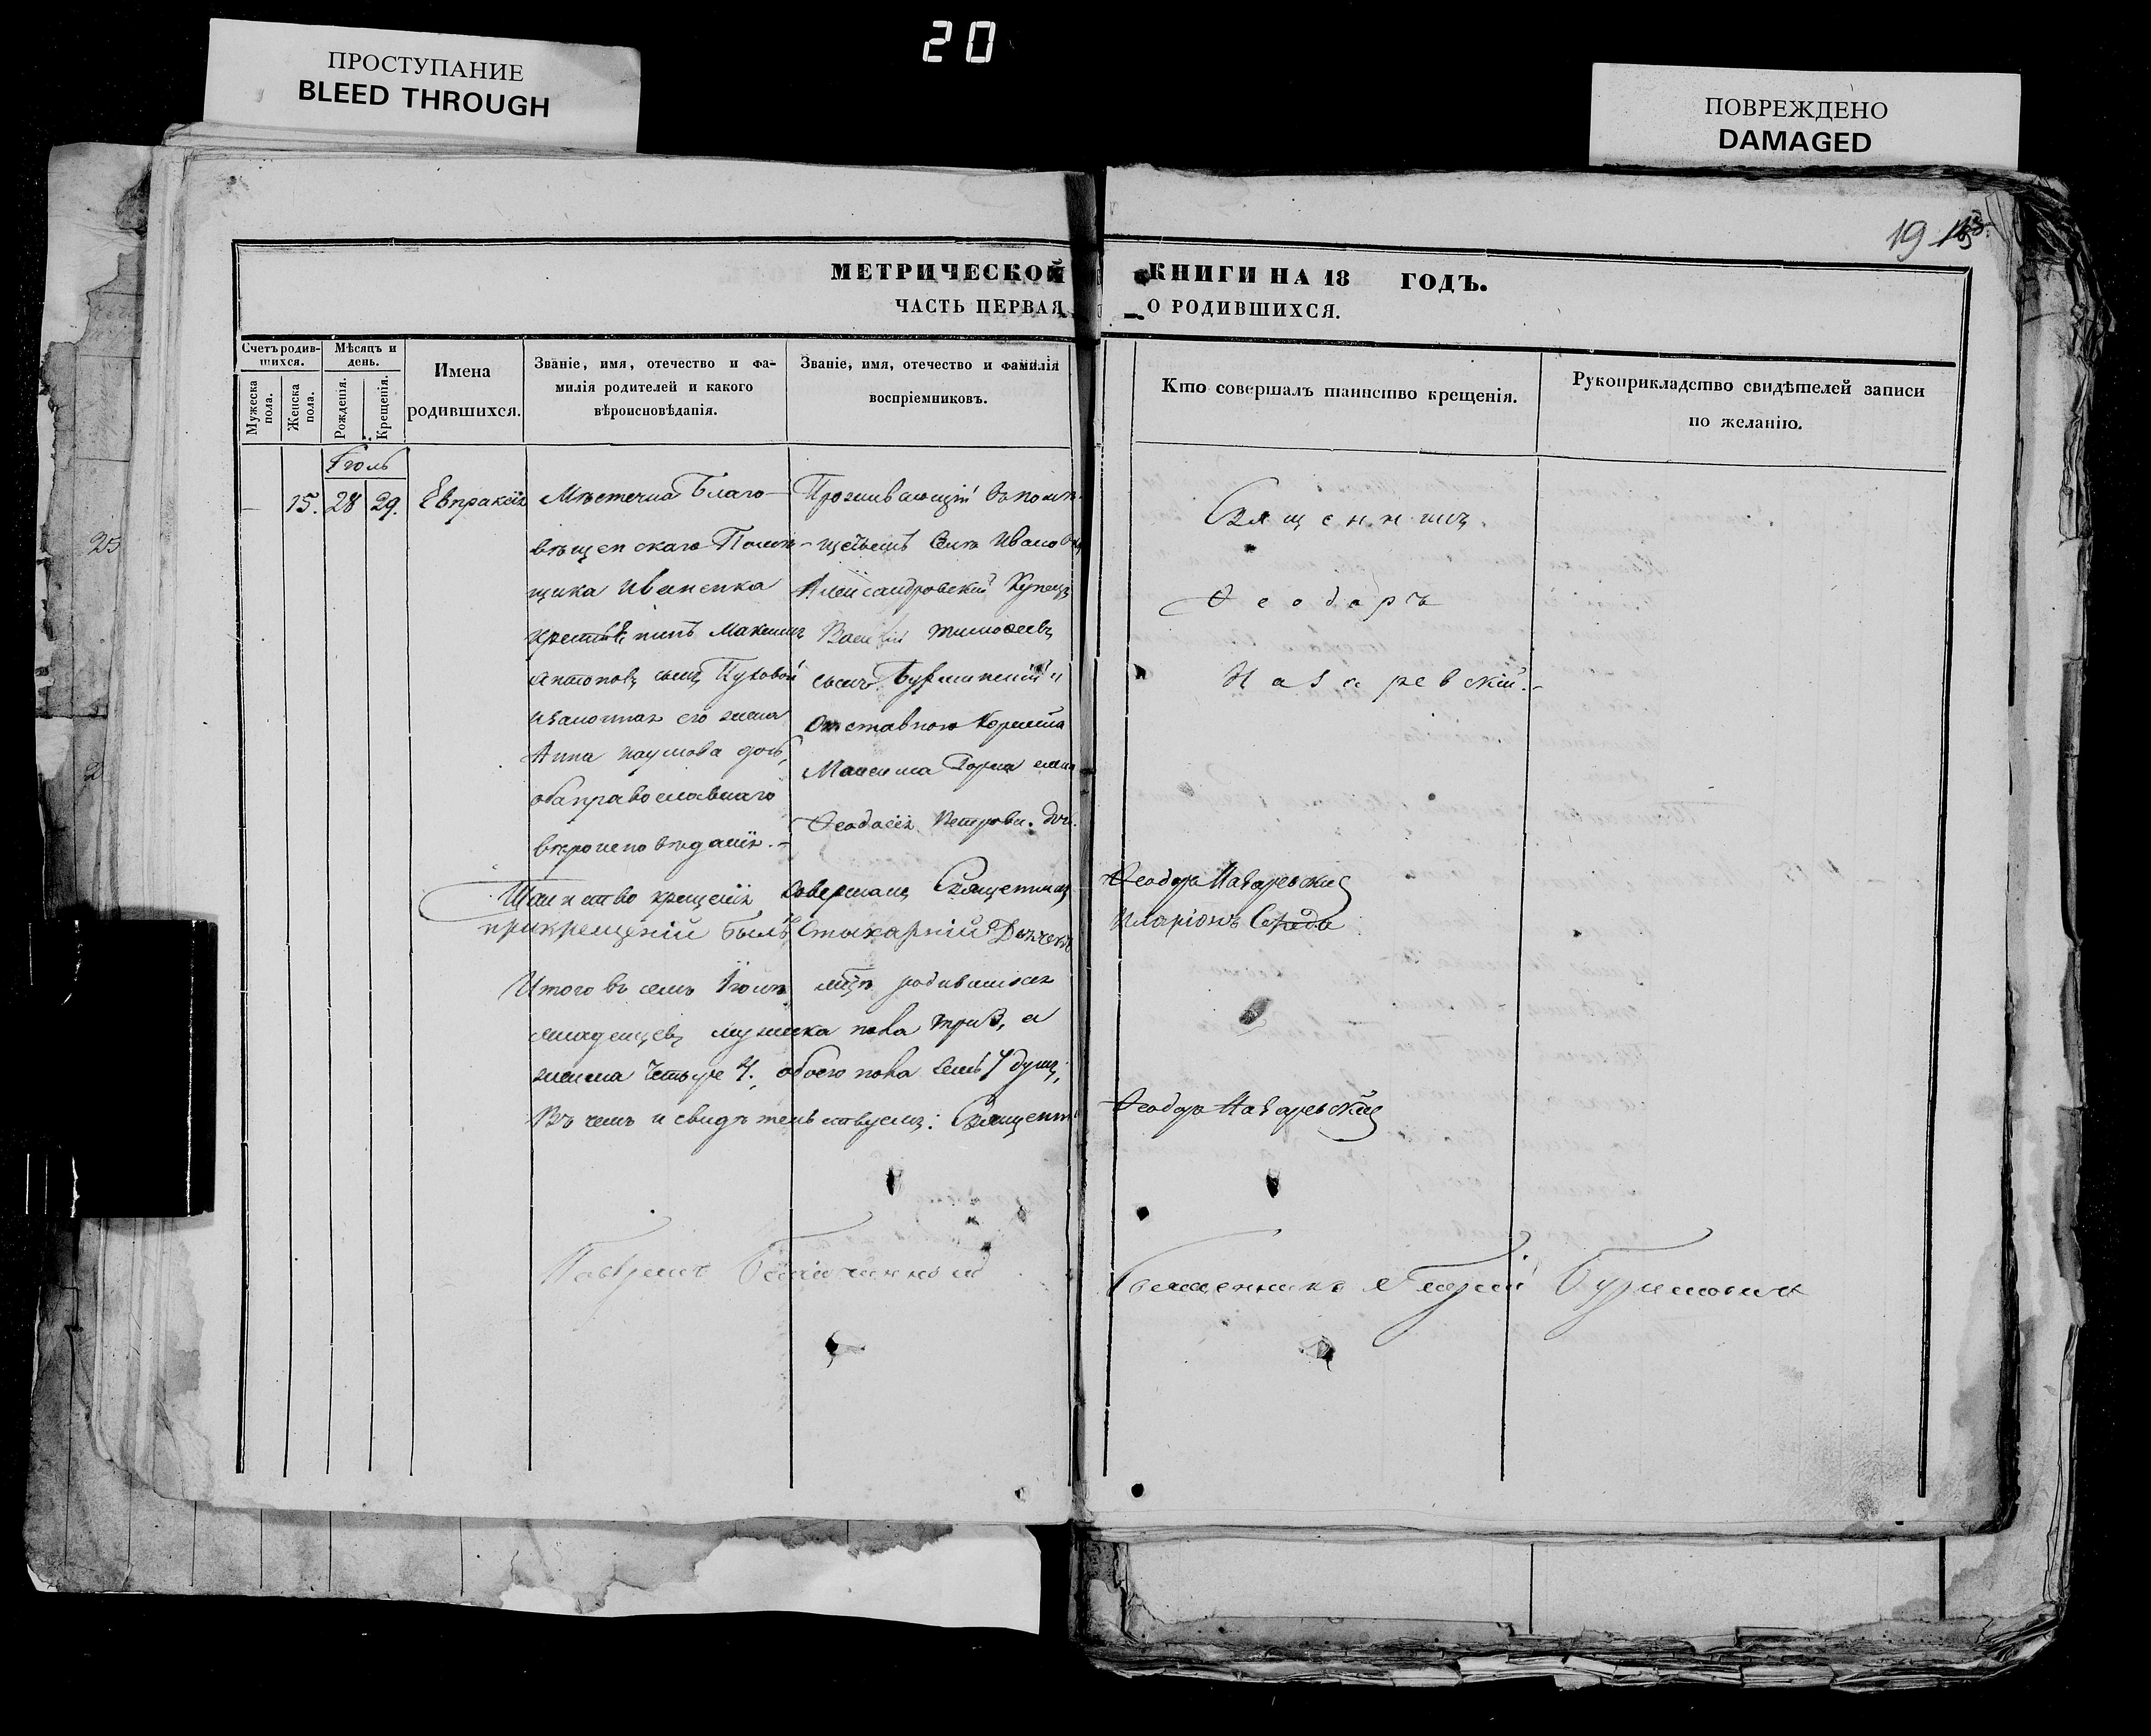 20
ПРОСТУПАНИЕ
BLEED THROUGH
ПОВРЕЖДЕНО
DAMAGED
19
МЕТРИЧЕСКОЙ КНИГИ НА 18 ГОДЪ.
ЧАСТЬ ПЕРВАЯ О РОДИВШИХСЯ.
Счетъ родив-
шихся.
Мѣсяцъ и
день.
Мужеска
пола.
Женска
пола.
Рожденія.
Крещенія.
Имена
родившихся.
Званіе, имя, отечество и фа-
милія родителей и какого
вѣроисповѣданія.
Званіе, имя, отечество и фамилія
воспріемниковъ.
Кто совершалъ таинство крещенія.
Рукоприкладство свидѣтелей записи
по желанію.
Іюль
15. 28 29. Евпраксія
Мѣстечка Благо-
вѣщенскаго Помѣ-
щика Иваненка
крестьянинъ Максимъ
Антоновъ сынъ Пуховой
Ивановичъ его жена
Анна Наумова дочь,
оба православнаго
вѣроисповѣданія.-
Проживающій въ помѣ-
щичьемъ Селѣ
Александровскій Купецъ
Василій Тимофеевъ
сынъ и
Отставного
Максима жена
Феодосія Петрова. доч.
Священникъ
Ѳеодоръ
Назаревскій.-
Таинство крещенія совершалъ Священникъ Ѳеодоръ Назаревскій
при крещеніи былъ Стихарный Дьячекъ Иларіонъ Середа
Итого въ семъ Іюлѣ мцѣ родившихся
младенцевъ мужеска пола три 3, а
женска четыре 4., обоего пола семь 7 душъ,
Въ чемъ и свидѣтельствуемъ: Священникъ Ѳеодоръ Назаревскій
Благочинный
Священникъ
25
2